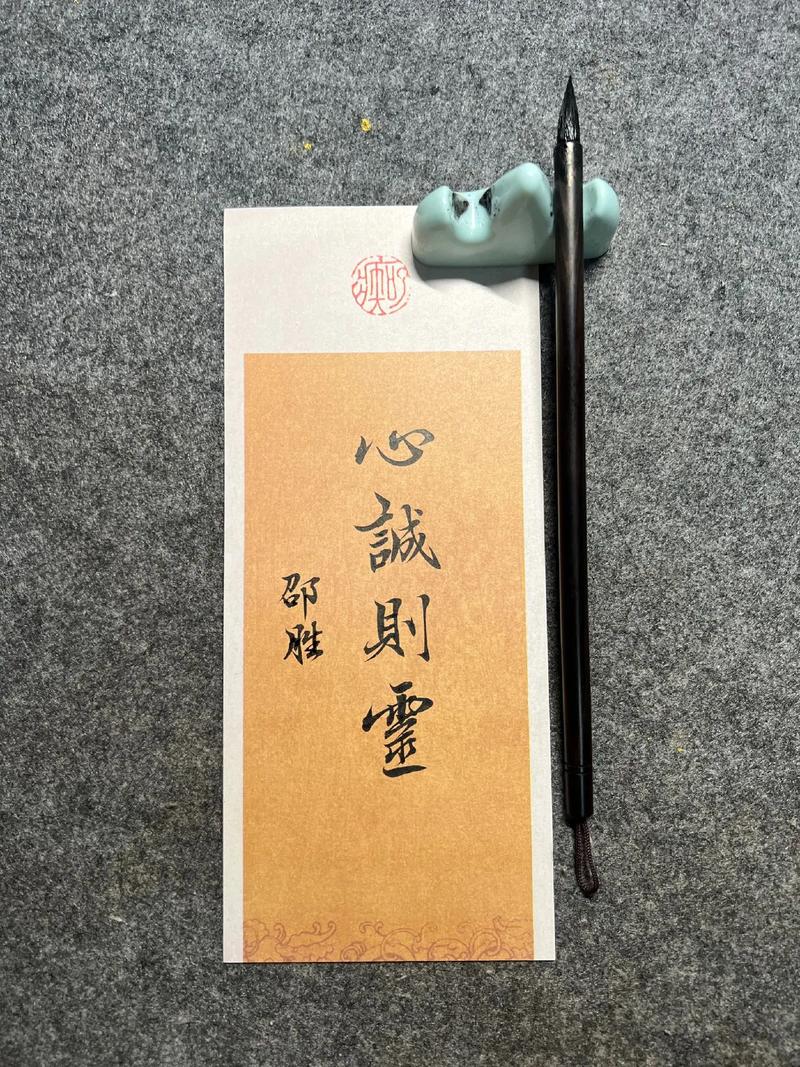 心誠則靈
邵胜